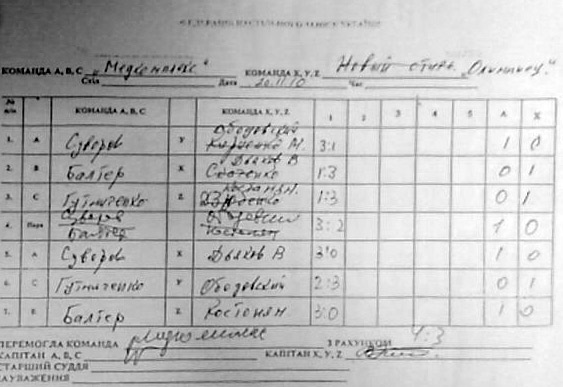 ФЕДЕРАЦІЯ НАСТІЛЬНОГО ТЕНІСУ УКРАЇНИ
КОМАНДА А, В, С „Медкомплекс" КОМАНДА X, Y, Z Новый стиль „Олимпиец"
Стіл Дата 20.11.10 Час
№ п/п КОМАНДА А, В, С КОМАНДА X, Y, Z 1 2 3 4 5 А X
Ободовский
1. А Суворов У М. 3:1 1 0
Дьяков В
2. В Балтер X 1:3 0 1
Костанян
3. С Гутниченко Z 1:3 0 1
Суворов
4. Пара Балтер 3:2 1 0
5. А Суворов X Дьяков В 3:0 1 0
6. С Гутниченко У Ободовский 2:3 0 1
7. В Балтер Z Костонян 3:0 1 0
ПЕРЕМОГЛА КОМАНДА З РАХУНКОМ 4:3
КАПІТАН А, В, С КАПІТАН X, Y, Z
СТАРШИЙ СУДДЯ
ЗАУВАЖЕННЯ